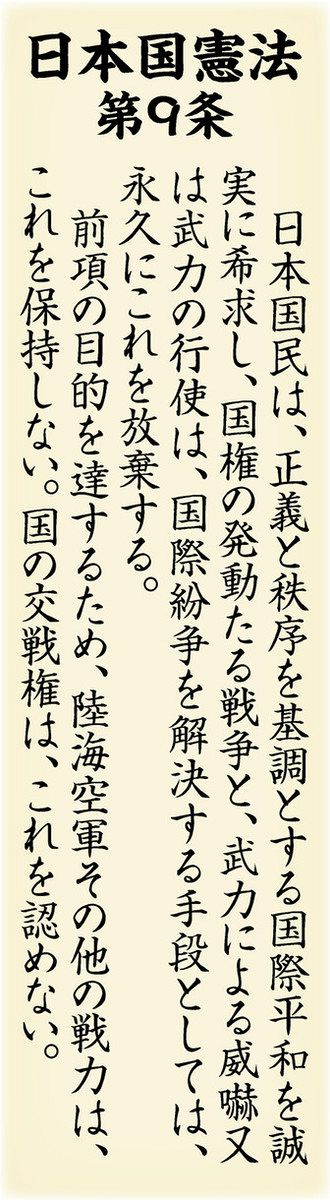 日本国憲法
第9条
日本国民は、正義と秩序を基調とする国際平和を誠
実に希求し、国権の発動たる戦争と、武力による威嚇又
は武力の行使は、国際紛争を解決する手段としては、
永久にこれを放棄する。
前項の目的を達するため、陸海空軍その他の戦力は、
これを保持しない。国の交戦権は、これを認めない。